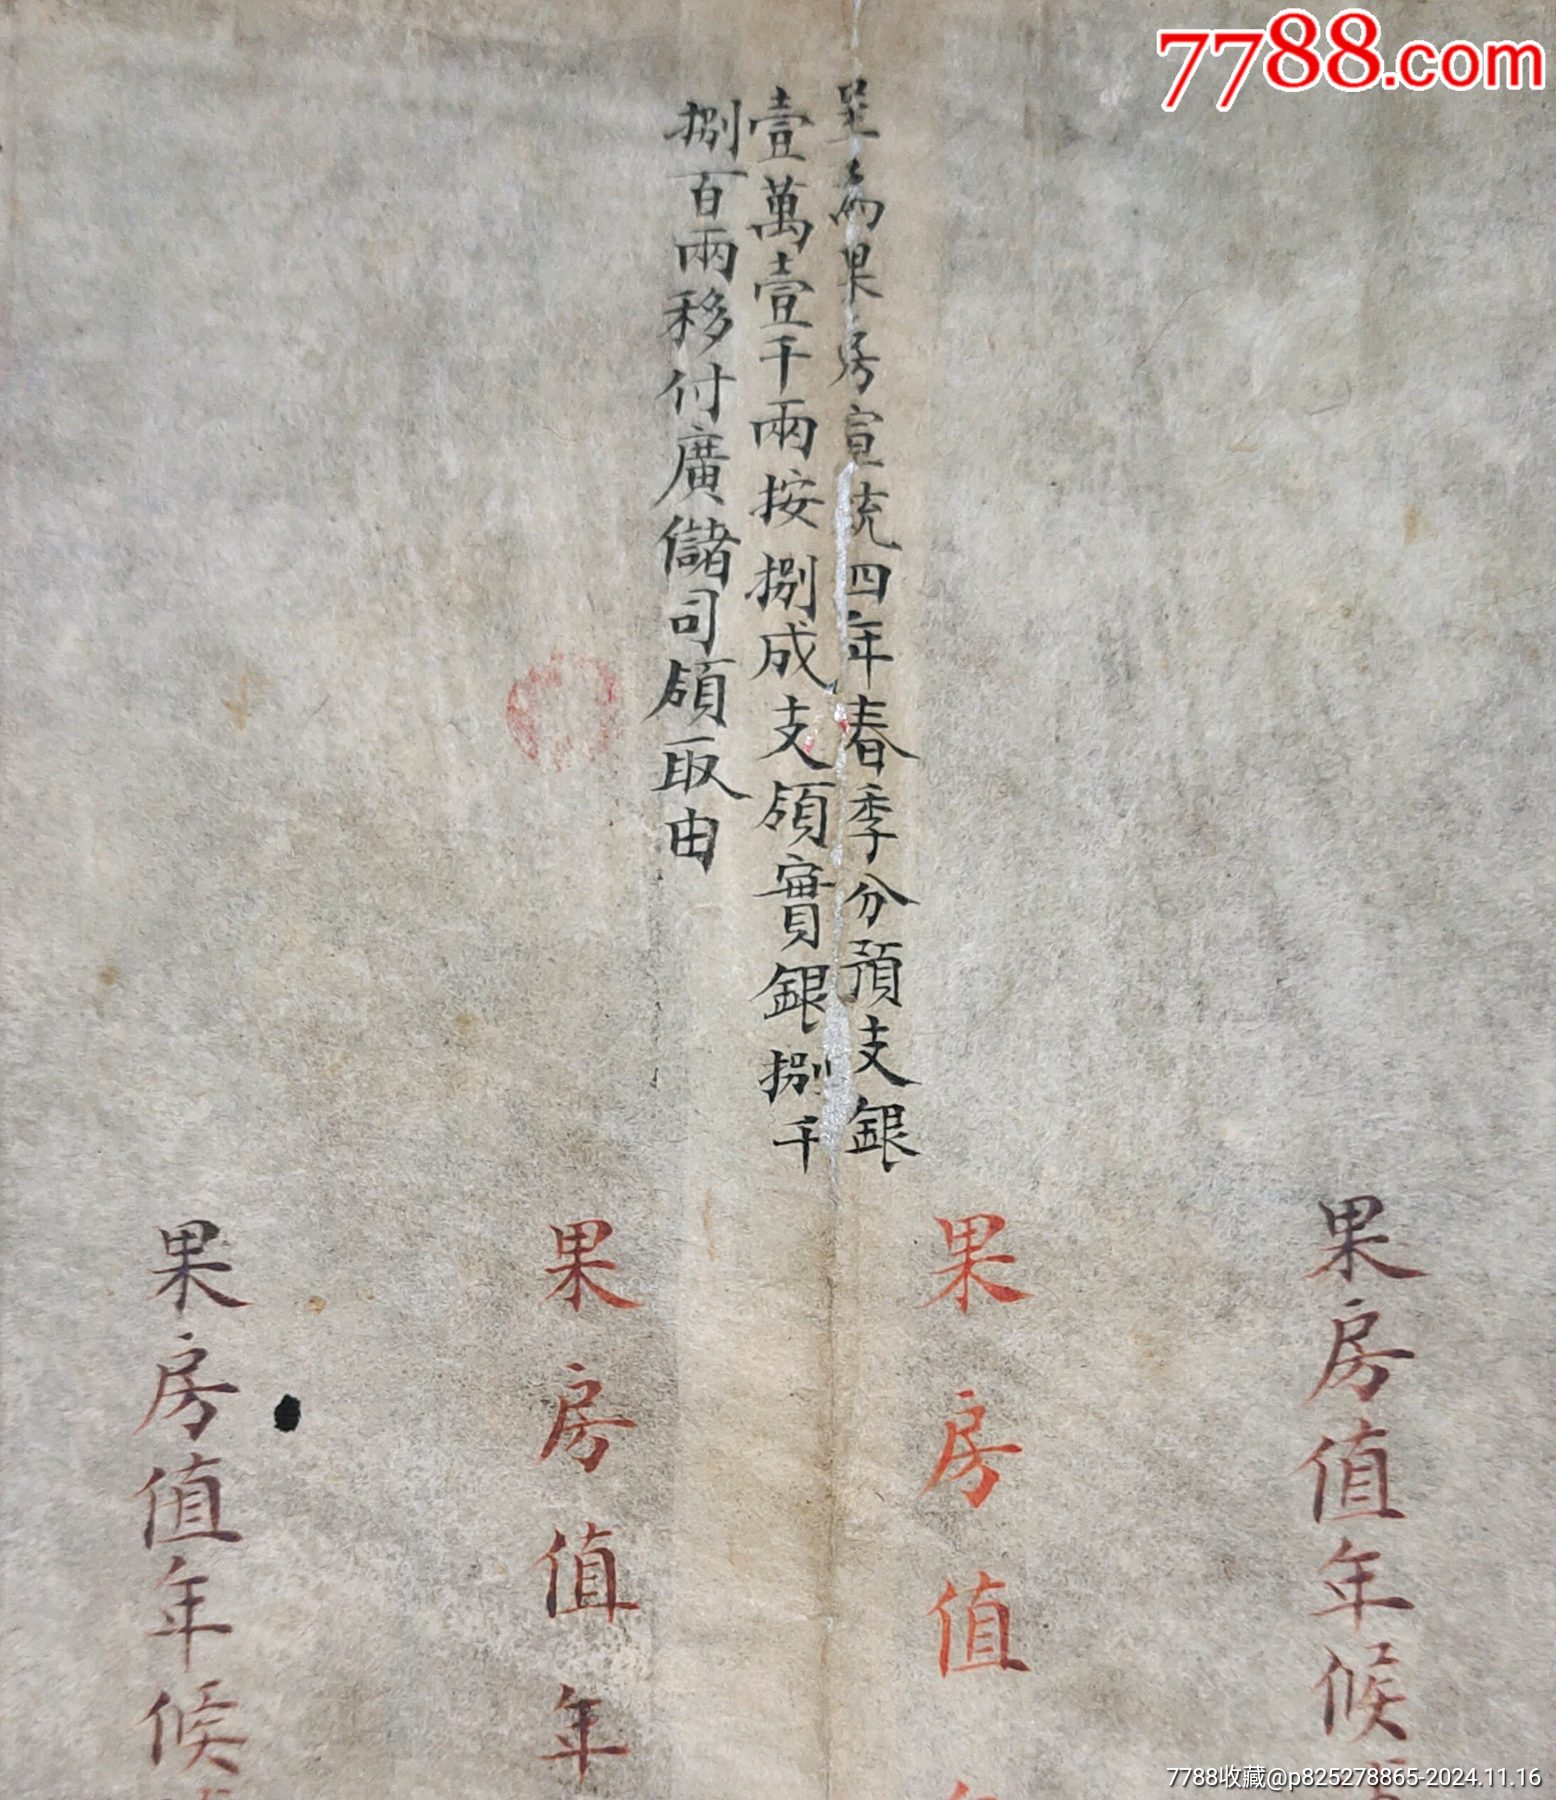 7788.com
呈為果房宣統四年春季分預支銀
壹萬壹千兩按捌成支領實銀捌千
捌百兩移付廣儲司領取由
果房值年候
果房值
果房值年
果房值年候
7788收藏@p825278865-2024.11.16